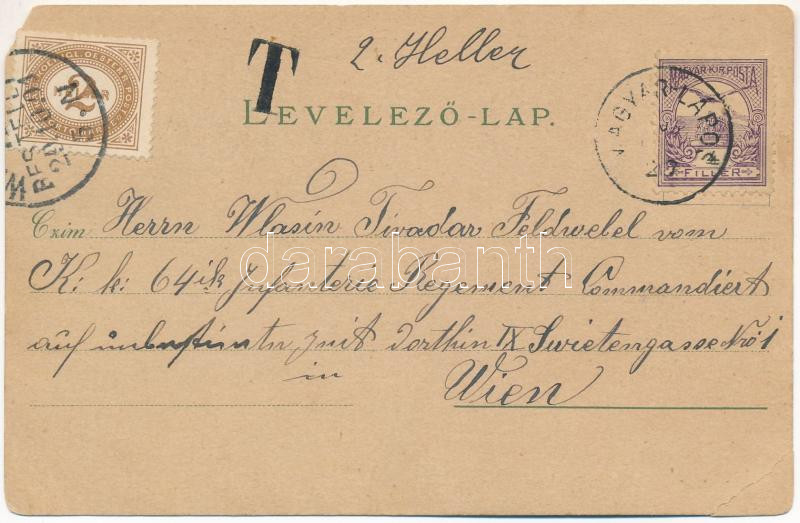 2. Heller
T
LEVELEZŐ-LAP.
2
MAGYAR KIR. POSTA
FILLER
Czim Herrn Wlasin Tivadar Feldwebel vom
K: k: 64ik Infanterie Regement Commandiert
auf Zeit dorthin IX Swietengasse No 1
in
Wien
darabanth